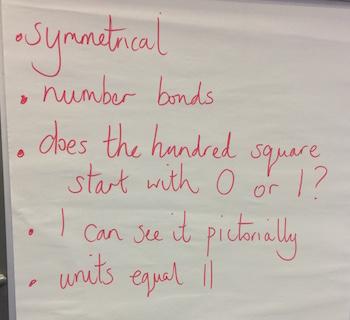 • symmetrical
• number bonds
• does the hundred square
start with 0 or 1?
• I can see it pictorially
• units equal 11